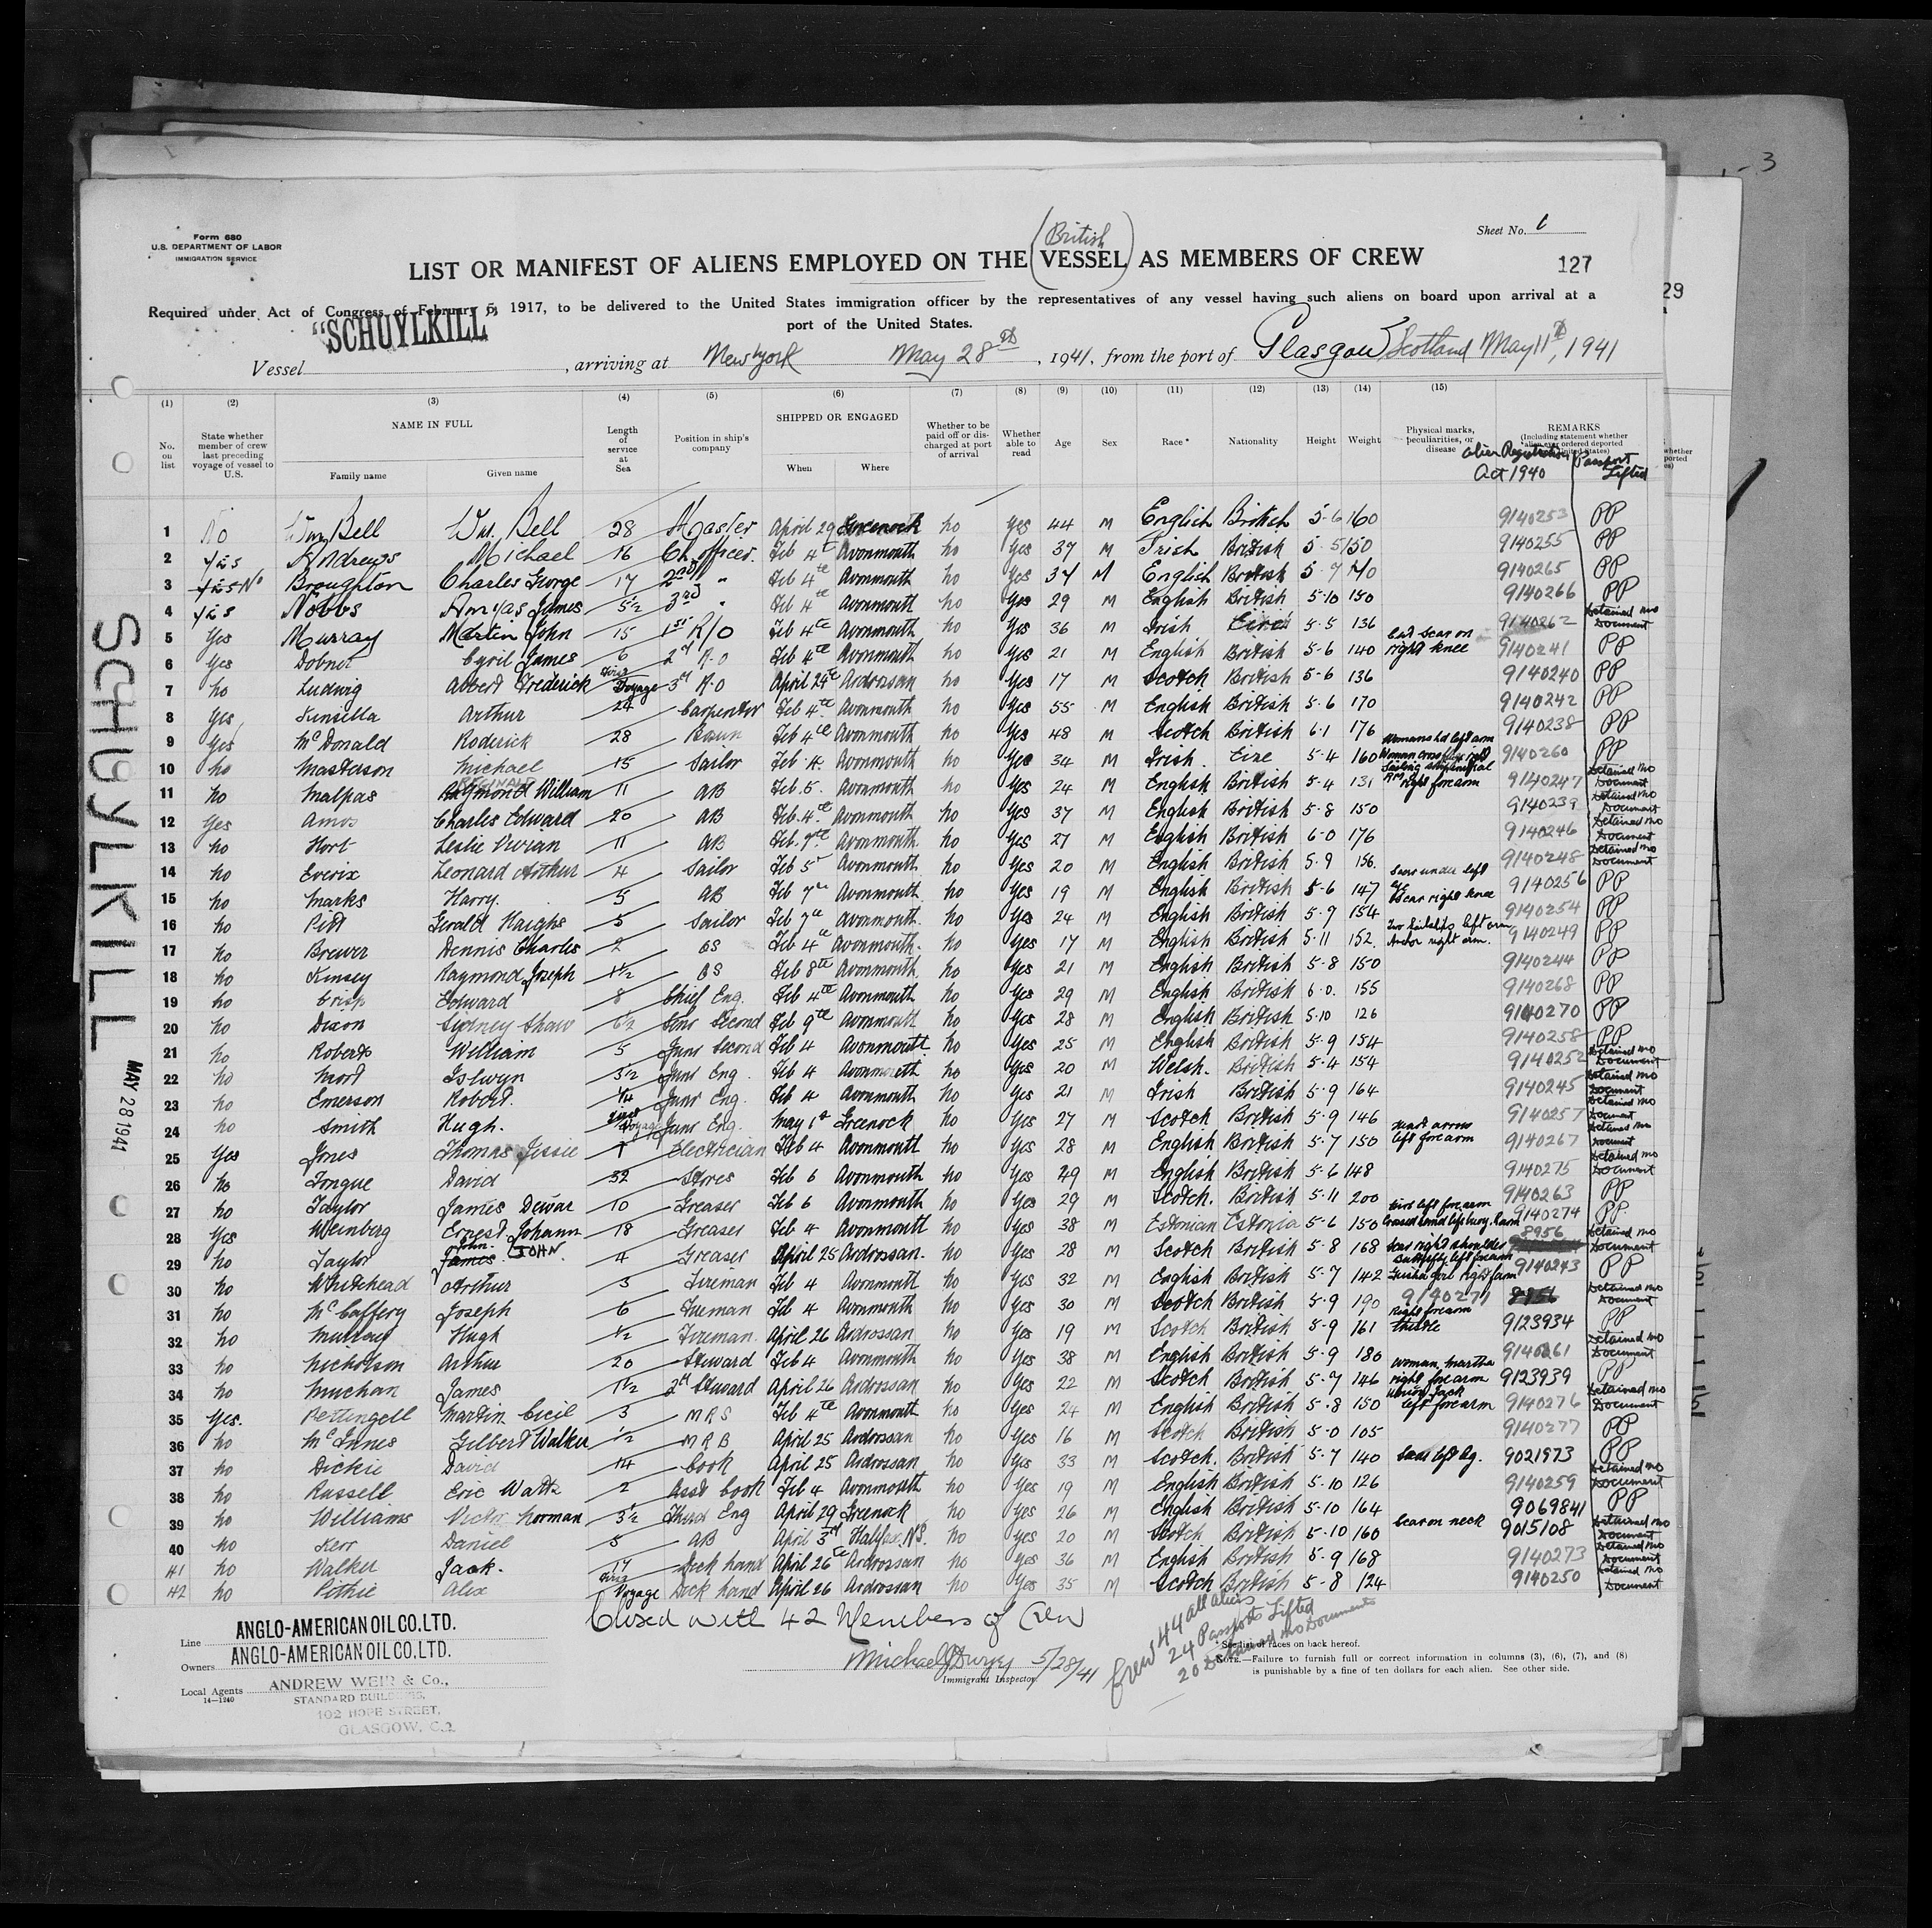 - 3
Form 680
U.S. DEPARTMENT OF LABOR
IMMIGRATION SERVICE
Sheet No. 1
(British)
LIST OR MANIFEST OF ALIENS EMPLOYED ON THE VESSEL AS MEMBERS OF CREW
127
29
Required under Act of Congress of February 5, 1917, to be delivered to the United States immigration officer by the representatives of any vessel having such aliens on board upon arrival at a
port of the United States.
Vessel "SCHUYLKILL", arriving at New York May 28th, 1941, from the port of Glasgow Scotland May 11th, 1941
(1) (2) (3) (4) (5) (6) (7) (8) (9) (10) (11) (12) (13) (14) (15)
No. on list
State whether member of crew last preceding voyage of vessel to U.S.
NAME IN FULL
Family name Given name
Length of service at Sea
Position in ship's company
SHIPPED OR ENGAGED
When Where
Whether to be paid off or discharged at port of arrival
Whether able to read
Age
Sex
Race*
Nationality
Height
Weight
Physical marks, peculiarities, or disease
REMARKS
(Including statement whether alien ever ordered deported
Alien Registration Act 1940
Passport Lifted
1 No Wm Bell Wm. Bell 28 Master April 29 Greenock No Yes 44 M English British 5-6 160 9140253 PP
2 Yes Andrews Michael 16 Ch. officer. Feb 4th Avonmouth No Yes 37 M Irish British 5-5 150 9140255 PP
3 Yes No Broughton Charles George 17 2nd " Feb 4th Avonmouth No Yes 37 M English British 5-7 140 9140265 PP
4 Yes Nobbs Amyas James 5½ 3rd " Feb 4th Avonmouth No Yes 29 M English British 5-10 150 9140266 PP
5 Yes Murray Martin John 15 1st R/O Feb 4th Avonmouth No Yes 36 M Irish Eire 5-5 136 9140262 Detained no Document
6 Yes Cyril James 6 2nd R.O Feb 4th Avonmouth No Yes 21 M English British 5-6 140 scar on right knee 9140241 PP
7 No Ludwig Albert Frederick First Voyage 3rd R.O April 24th Ardrossan No Yes 17 M Scotch British 5-6 136 9140240 PP
8 Yes Arthur 24 Carpenter Feb 4th Avonmouth No Yes 55 M English British 5-6 170 9140242 PP
9 Yes McDonald Roderick 28 Bosun Feb 4th Avonmouth No Yes 48 M Scotch British 6-1 176 9140238 PP
10 No Masterson Michael 15 Sailor Feb 4. Avonmouth No Yes 34 M Irish Eire 5-4 160 9140260 PP
11 No Malpas Raymond William 11 AB Feb. 5. Avonmouth No Yes 24 M English British 5-4 131 right forearm 9140247 Detained no Document
12 Yes Amos Charles Edward 20 AB Feb. 4th Avonmouth No Yes 37 M English British 5-8 150 9140239 Detained no Document
13 No Hort Leslie Vivian 11 AB Feb. 7th Avonmouth No Yes 27 M English British 6-0 176 9140246 Detained no Document
14 No Leonard Arthur 4 Sailor Feb 5 Avonmouth No Yes 20 M English British 5-9 156. 9140248 Detained no Document
15 No Marks Harry. 5 AB Feb 7th Avonmouth No Yes 19 M English British 5-6 147 Scar under left eye Scar right knee 9140256 PP
16 No Pitt Gerald Haighs 5 Sailor Feb 7th Avonmouth No Yes 24 M English British 5-9 154 9140254 PP
17 No Brewer Dennis Charles 2 OS Feb 4th Avonmouth No Yes 17 M English British 5-11 152. left arm Anchor right arm. 9140249 PP
18 No Kinsey Raymond Joseph 1½ OS Feb 8th Avonmouth No Yes 21 M English British 5-8 150 9140244 PP
19 No Crisp Edward 8 Chief Eng. Feb 4th Avonmouth No Yes 29 M English British 6-0. 155 9140268 PP
20 No Dixon Sidney Shaw 6½ Senr Second Feb 9th Avonmouth No Yes 28 M English British 5-10 126 9140270 PP
21 No Roberts William 5 Junr Second Feb 4 Avonmouth No Yes 25 M English British 5-9 154 9140258 PP
22 No Islwyn 3½ Junr Eng. Feb 4 Avonmouth No Yes 20 M Welsh. British 5-4 154 9140252 Detained no Document
23 No Emerson Robert. ¼ Junr Eng. Feb 4 Avonmouth No Yes 21 M Irish British 5-9 164 9140245 Detained no Document
24 No Smith Hugh. First Voyage Junr Eng. May 1st Greenock No Yes 27 M Scotch British 5-9 146 9140257 Detained no Document
25 Yes Jones Thomas Jessie 1 Electrician Feb 4 Avonmouth No Yes 28 M English British 5-7 150 left forearm 9140267 Detained no Document
26 No Tongue David 32 Stores Feb 6 Avonmouth No Yes 49 M English British 5-6 148 9140275 Detained no Document
27 No Taylor James Dewar 10 Greaser Feb 6 Avonmouth No Yes 29 M Scotch. British 5-11 200 9140263 PP
28 Yes Weinberg Ernest Johann JOHN 18 Greaser Feb 4 Avonmouth No Yes 38 M Estonian Estonia 5-6 150 left forearm 9140274 PP.
29 No Taylor James John. 4 Greaser April 25 Ardrossan. No Yes 28 M Scotch British 5-8 168 Scar right shoulder 8956 Detained no Document
30 No Whitehead Arthur 3 Fireman Feb 4 Avonmouth No Yes 32 M English British 5-7 142 Butterfly left forearm 9140243 PP
31 No McCaffery Joseph 6 Fireman Feb 4 Avonmouth No Yes 30 M Scotch British 5-9 190 9140271 Detained no Document
32 No Murray Hugh ½ Fireman. April 26 Ardrossan No Yes 19 M Scotch British 5-9 161 Right forearm thistle 9123934 PP
33 No Nicholson Arthur 20 Steward Feb 4 Avonmouth No Yes 38 M English British 5-9 180 9140261 Detained no Document
34 No James 1½ 2nd Steward April 26 Ardrossan No Yes 22 M Scotch British 5-7 146 woman, martha right forearm 9123939 PP
35 Yes. Pettingell Martin Cecil 3 MRS Feb 4th Avonmouth No Yes 24 M English British 5-8 150 Union Jack left forearm 9140276 Detained no Document
36 No McInnes Gilbert Walker ½ MRB April 25 Ardrossan No Yes 16 M Scotch British 5-0 105 9140277 PP
37 No Dickie David 14 Cook April 25 Ardrossan No Yes 33 M Scotch. British 5-7 140 Scar left leg. 9021973 PP
38 No Russell Eric 2 Asst Cook Feb 4 Avonmouth No Yes 19 M English British 5-10 126 9140259 Detained no Document
39 No Williams Victor Norman 3½ Third Eng April 29 Greenock No Yes 26 M English British 5-10 164 9069841 PP
40 No Kerr Daniel 5 AB April 3rd Halifax N.S. No Yes 20 M Scotch British 5-10 160 Scar on neck 9015108 Detained no Document
41 No Walker Jack. 17 Deck hand April 26th Ardrossan No Yes 36 M English British 5-9 168 9140273 Detained no Document
42 No Pethie Alex First Voyage Deck hand April 26 Ardrossan No Yes 35 M Scotch British 5-8 124 9140250 Detained no Document
SCHUYLKILL MAY 28 1941
Closed with 42 Members of Crew
Crew 44 all aliens
24 Passports Lifted
20 Detained no Documents
Line ANGLO-AMERICAN OIL CO. LTD.
Owners ANGLO-AMERICAN OIL CO. LTD.
Local Agents ANDREW WEIR & Co.,
14—1240
STANDARD BUILDINGS,
102 HOPE STREET,
GLASGOW, C.2.
5/28/41
Immigrant Inspector.
* See list of races on back hereof.
NOTE.—Failure to furnish full or correct information in columns (3), (6), (7), and (8)
is punishable by a fine of ten dollars for each alien. See other side.